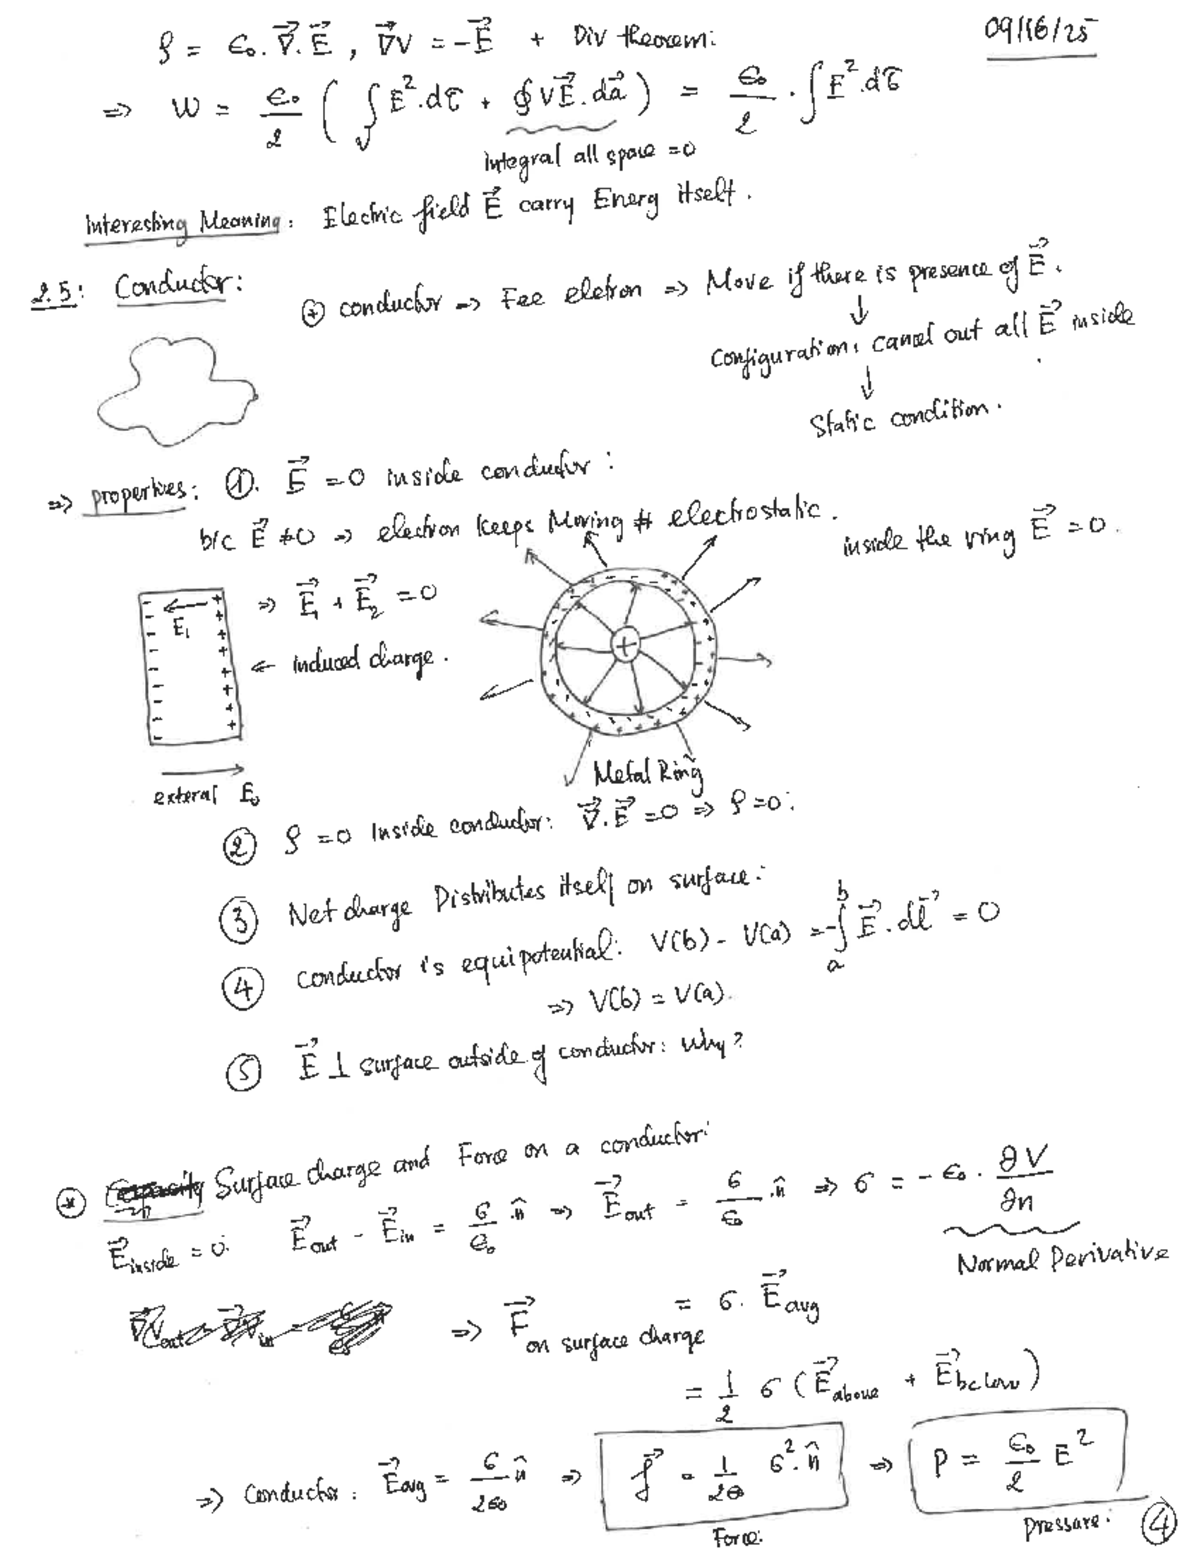 09/16/25
ρ = ϵ₀. ∇⃗.E⃗ , ∇⃗V = -E⃗ + Div theorem:
⇒ W = ϵ₀/2 ( ∫_V E².dτ + ∮VE⃗.da⃗ ) = ϵ₀/2 . ∫E².dτ
integral all space = 0
Interesting Meaning: Electric field E⃗ carry Energy itself.
2.5: Conductor:
⊕ conductor ⇒ Fee eletron ⇒ Move if there is presence of E⃗.
↓
Configuration: cancel out all E⃗ inside
↓
Static condition.
⇒ properties: ①. E⃗ = 0 inside conductor:
b/c E⃗ ≠ 0 ⇒ electron keeps Moving # electrostatic.
inside the ring E⃗ = 0.
E₁
⇒ E⃗₁ + E⃗₂ = 0
← induced charge.
exteral E₀
Metal Ring
② ρ = 0 Inside conductor: ∇⃗.E⃗ = 0 ⇒ ρ = 0:
③ Net charge Distributes itself on surface:
④ conductor is equipotential: V(b) - V(a) = -∫_a^b E⃗.dl⃗ = 0
⇒ V(b) = V(a).
⑤ E⃗ ⊥ surface outside of conductor: Why?
⊛ Surface charge and Force on a conductor:
E⃗inside = 0: E⃗out - E⃗in = σ/ϵ₀ .n̂ ⇒ E⃗out = σ/ϵ₀ .n̂ ⇒ σ = -ϵ₀. ∂V/∂n
Normal Derivative
⇒ F⃗ on surface charge = σ. E⃗avg
= 1/2 σ (E⃗above + E⃗below)
⇒ Conductor: E⃗avg = σ/2ϵ₀ n̂ ⇒ f⃗ = 1/2ϵ₀ σ².n̂ ⇒ P = ϵ₀/2 E²
Force: Pressure: ④